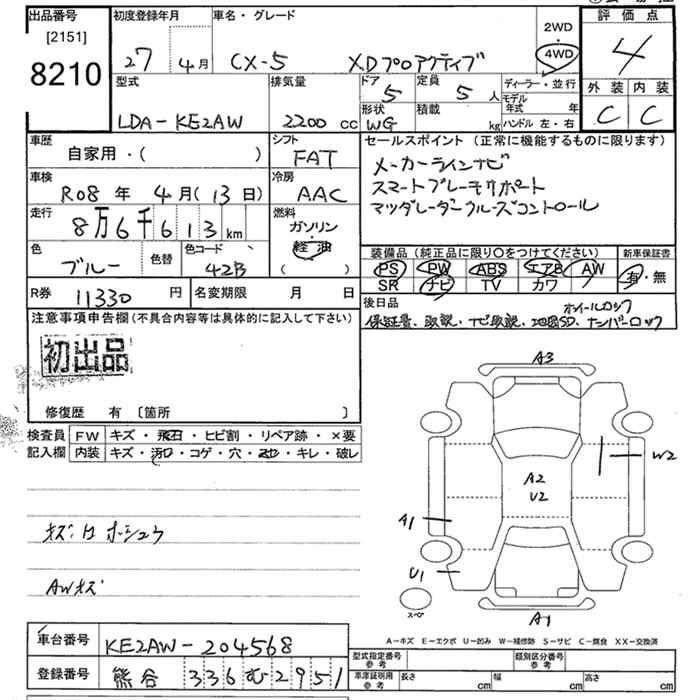 出品番号
[2151]
8210
初度登録年月
27 4月
車名・グレード
CX-5 XDプロアクティブ
2WD
4WD
評価点
4
外装 内装
C C
型式
LDA-KE2AW
排気量
2200 cc
ドア 5
定員 5 人
形状 WG
積載 kg
ディーラー・並行
モデル年式 年
ハンドル 左・右
車歴
自家用・( )
シフト
FAT
車検
R08 年 4月(13日)
冷房
AAC
走行
8万6千613km
燃料
ガソリン
軽油
( )
色
ブルー
色替
色コード
42B
R券 11330 円
名変期限 月 日
セールスポイント(正常に機能するものに限ります)
メーカーラインナビ
スマートブレーキサポート
マツダレーダークルーズコントロール
装備品(純正品に限り○をつけてください)
PS PW ABS エアB AW
SR ナビ TV カワ
新車保証書
有・無
後日品
ホイールロック
保証書、取説、ナビ取説、地図SD、ナンバーロック
注意事項申告欄(不具合内容等は具体的に記入して下さい)
初出品
修復歴 有 〔箇所 〕
検査員記入欄
FW キズ・飛石・ヒビ割・リペア跡・×要
内装 キズ・汚れ・コゲ・穴・ヌセ・キレ・破レ
キズ:H ホシュウ
AWキズ
A3
W2
A2
U2
A1
U1
スペア
A1
A-キズ E-エクボ U-凹み W-補修跡 S-サビ C-腐食 XX-交換済
車台番号
KE2AW-204568
登録番号
熊谷 336む2951
型式指定番号参考
類別区分番号参考
車庫証明用参考
長さ cm
幅 cm
高さ cm